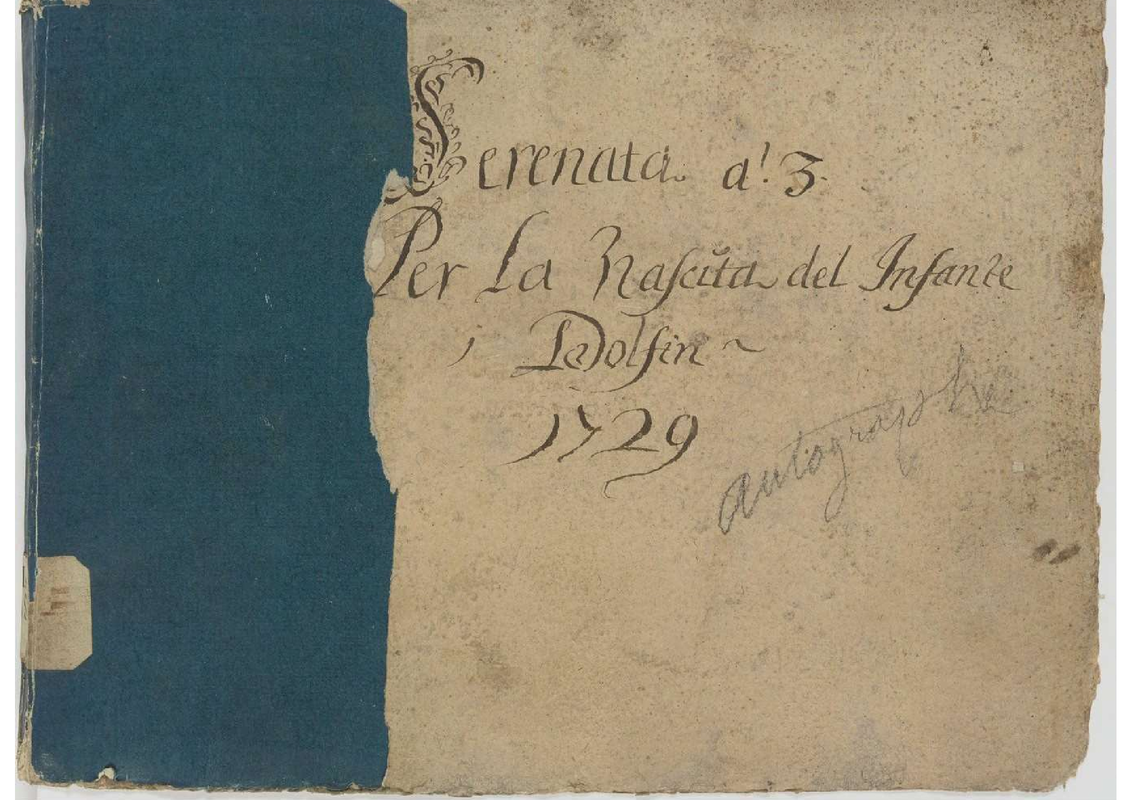 Serenata. a! 3.
Per La Nascita del Infante
Dolfin ~
1729
autographe